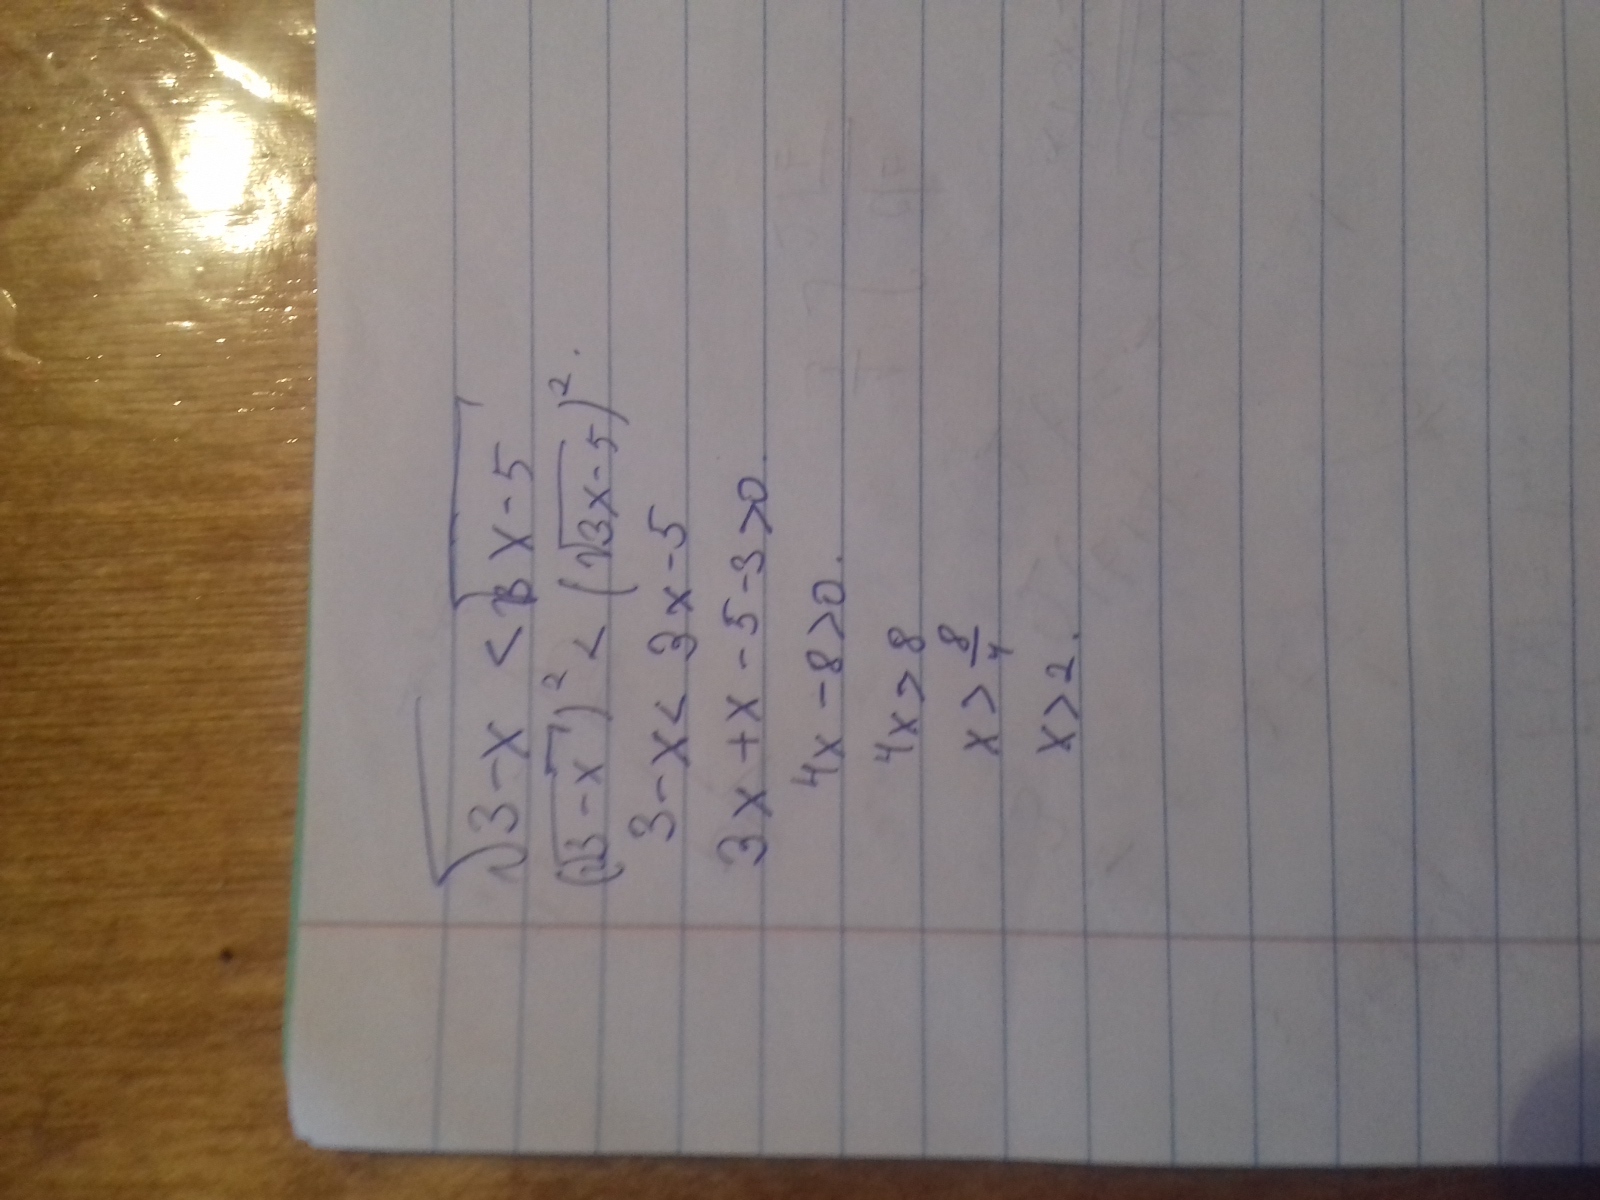 √3-x < √3x-5
(√3-x)² < (√3x-5)².
3-x < 3x-5
3x+x-5-3>0.
4x-8>0.
4x>8
x> 8/4
x>2.